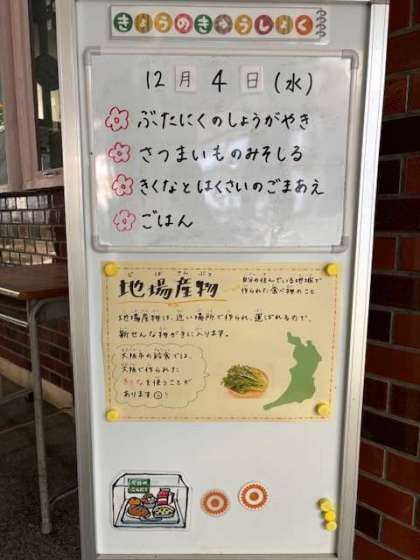 きょうのきゅうしょく
12月4日(水)
ぶたにくのしょうがやき
さつまいものみそしる
きくなとはくさいのごまあえ
ごはん
じばさんぶつ
地場産物
自分の住んでいる地域で
作られた食べ物のこと
地場産物は、近い場所で作られ、運ばれるので、
新せんな物が手に入ります。
大阪市の給食では、
大阪で作られた
きくなを使うことが
あります